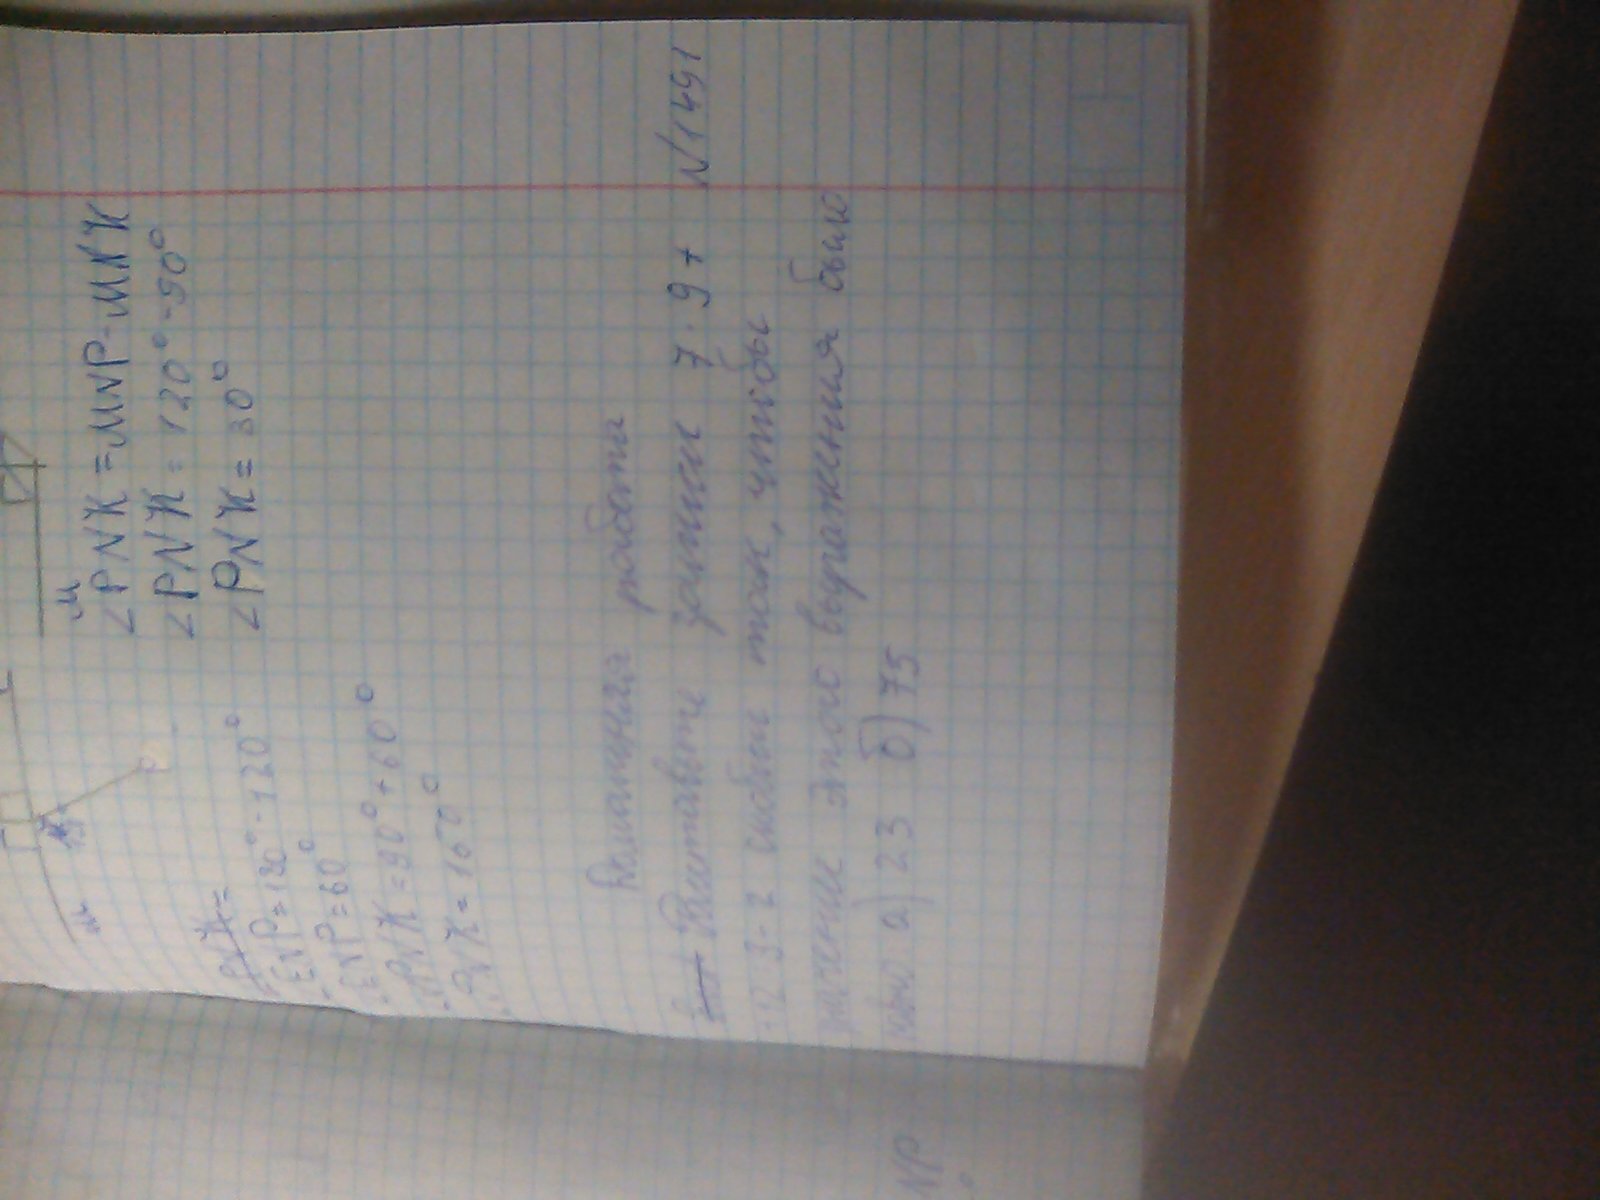 М
∠PNK = MNP - MNK
∠PNK = 120° - 90°
∠PNK = 30°
м
ENP = 180° - 120°
ENP = 60°
PNK = 90° + 60°
PNK = 160°
Домашняя работа
Расставьте в записи 7 · 9 + N1491
12 : 3 - 2 скобки так, чтобы
значение этого выражения было
а) 23 б) 75
NP